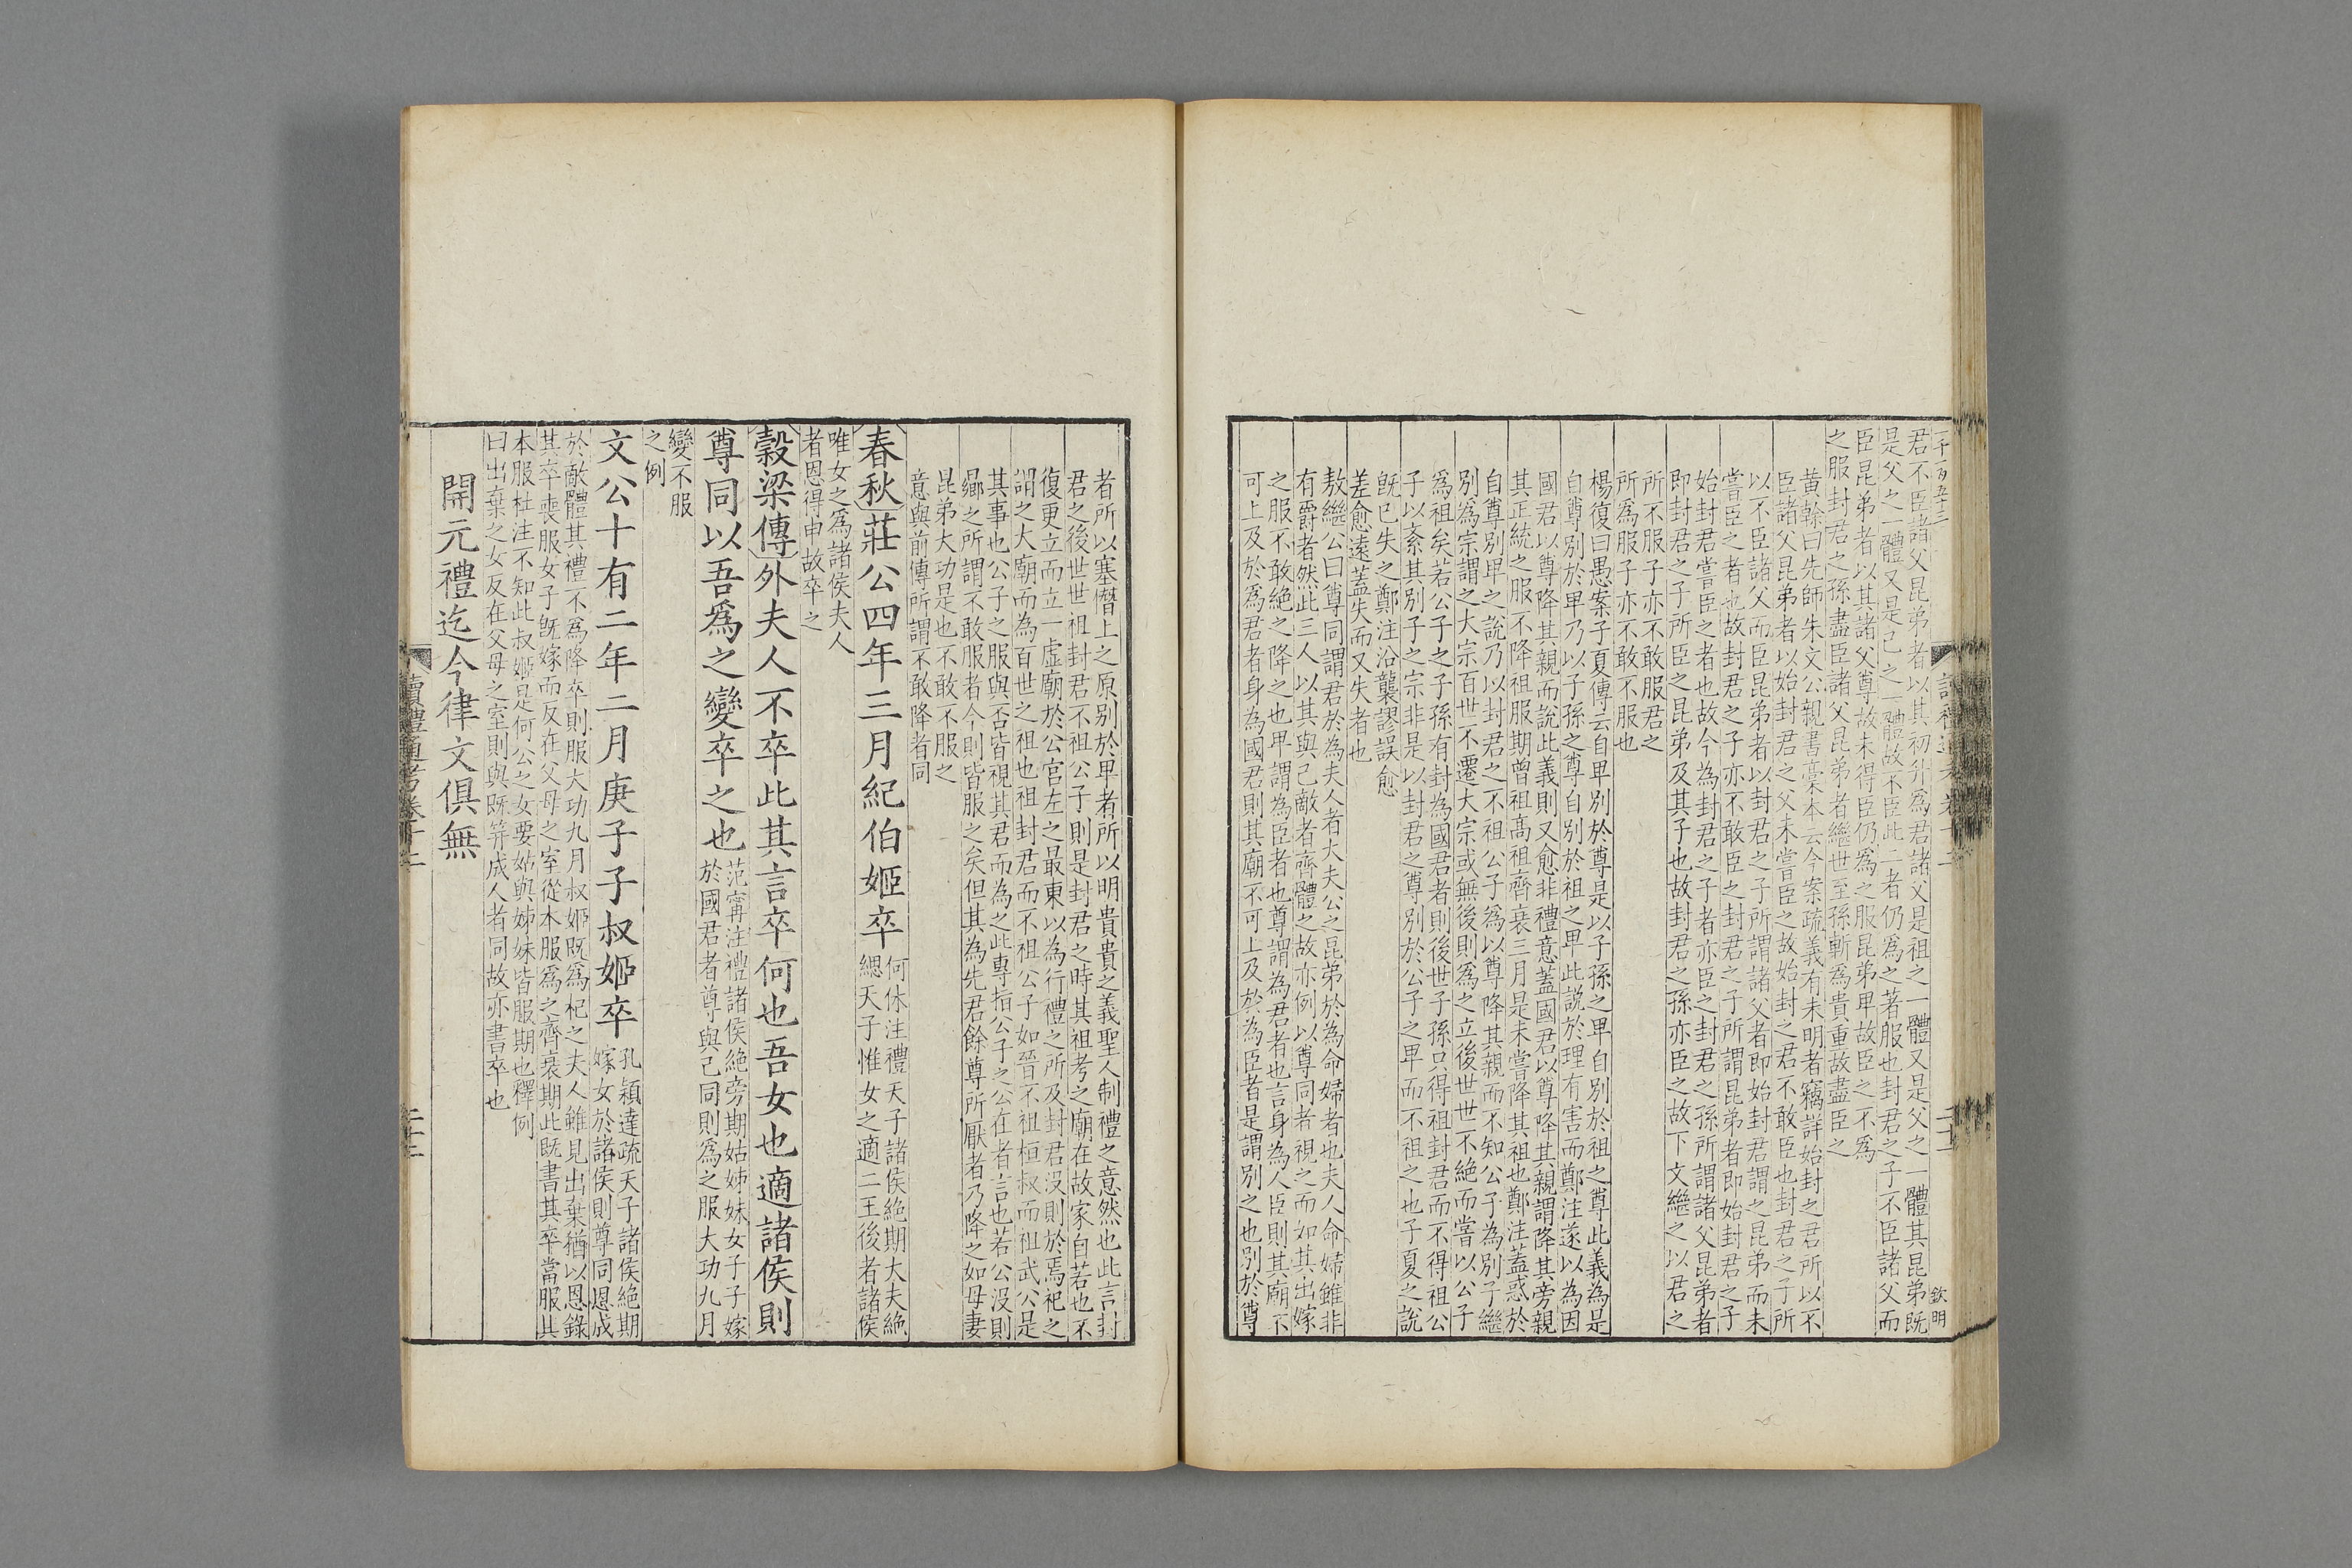 一千一百五十三
君不臣諸父昆弟者以其初升爲君諸父是祖之一體又是父之一體其昆弟既
是父之一體又是己之一體故不臣此二者仍爲之著服也封君之子不臣諸父而
臣昆弟者以其諸父尊故未得臣仍爲之服昆弟卑故臣之不爲
之服封君之孫盡臣諸父昆弟者繼世至孫漸爲貴重故盡臣之
黃榦曰先師朱文公親書藁本云今案疏義有未明者竊詳始封之君所以不
臣諸父昆弟者以始封君之父未嘗臣之故始封之君不敢臣也封君之子所
以不臣諸父而臣昆弟者以封君之子所謂諸父者即始封君謂之昆弟而未
嘗臣之者也故封君之子亦不敢臣之封君之子所謂昆弟者即始封君之子
始封君嘗臣之者也故今為封君之子者亦臣之封君之孫所謂諸父昆弟者
即封君之子所臣之昆弟及其子也故封君之孫亦臣之故下文繼之以君之
所不服子亦不敢服君之
所爲服子亦不敢不服也
楊復曰愚案子夏傳云自卑別於尊是以子孫之卑自別於祖之尊此義為是
自尊別於卑乃以子孫之尊自別於祖之卑此説於理有害而鄭注遂以為因
國君以尊降其親而説此義則又愈非禮意蓋國君以尊降其親謂降其旁親
其正統之服不降祖服期曾祖髙祖齊衰三月是未嘗降其祖也鄭注蓋惑於
自尊別卑之説乃以封君之不祖公子爲以尊降其親而不知公子為別子繼
別爲宗謂之大宗百世不遷大宗或無後則爲之立後世世不絶而嘗以公子
爲祖矣若公子之子孫有封為國君者則後世子孫只得祖封君而不得祖公
子以紊其別子之宗非是以封君之尊別於公子之卑而不祖之也子夏之説
既已失之鄭注沿襲謬誤愈
差愈遠蓋失而又失者也
敖繼公曰尊同謂君於為夫人者大夫公之昆弟於為命婦者也夫人命婦雖非
有爵者然此三人以其與己敵者齊體之故亦例以尊同者視之而如其出嫁
之服不敢絶之降之也卑謂為臣者也尊謂為君者也言身為人臣則其廟不
可上及於為君者身為國君則其廟不可上及於為臣者是謂別之也別於尊
欽明
者所以塞僭上之原別於卑者所以明貴貴之義聖人制禮之意然也此言封
君之後世世祖封君不祖公子則是封君之時其祖考之廟在故家自若也不
復更立而立一虛廟於公宫左之最東以為行禮之所及封君没則於焉祀之
謂之大廟而為百世之祖也祖封君而不祖公子如晉不祖桓叔而祖武公是
其事也公子之服與否皆視其君而為之此專指公子之公在者言也若公没則
曏之所謂不敢服者今則皆服之矣但其為先君餘尊所厭者乃降之如母妻
昆弟大功是也不敢不服之
意與前傳所謂不敢降者同
春秋莊公四年三月紀伯姬卒何休注禮天子諸侯絶期大夫絶
緦天子惟女之適二王後者諸侯
唯女之爲諸侯夫人
者恩得申故卒之
穀梁傳外夫人不卒此其言卒何也吾女也適諸侯則
尊同以吾爲之變卒之也范寗注禮諸侯絶旁期姑姊妹女子子嫁
於國君者尊與己同則爲之服大功九月
變不服
之例
文公十有二年二月庚子子叔姬卒孔穎達疏天子諸侯絶期
嫁女於諸侯則尊同恩成
於敵體其禮不爲降卒則服大功九月叔姬既爲杞之夫人雖見出棄猶以恩錄
其卒喪服女子既嫁而反在父母之室從本服爲之齊衰期此既書其卒當服其
本服杜注不知此叔姬是何公之女要姑與姊妹皆服期也釋例
曰出棄之女反在父母之室則與既笄成人者同故亦書卒也
開元禮迄今律文俱無
讀禮通考卷十二
二十二